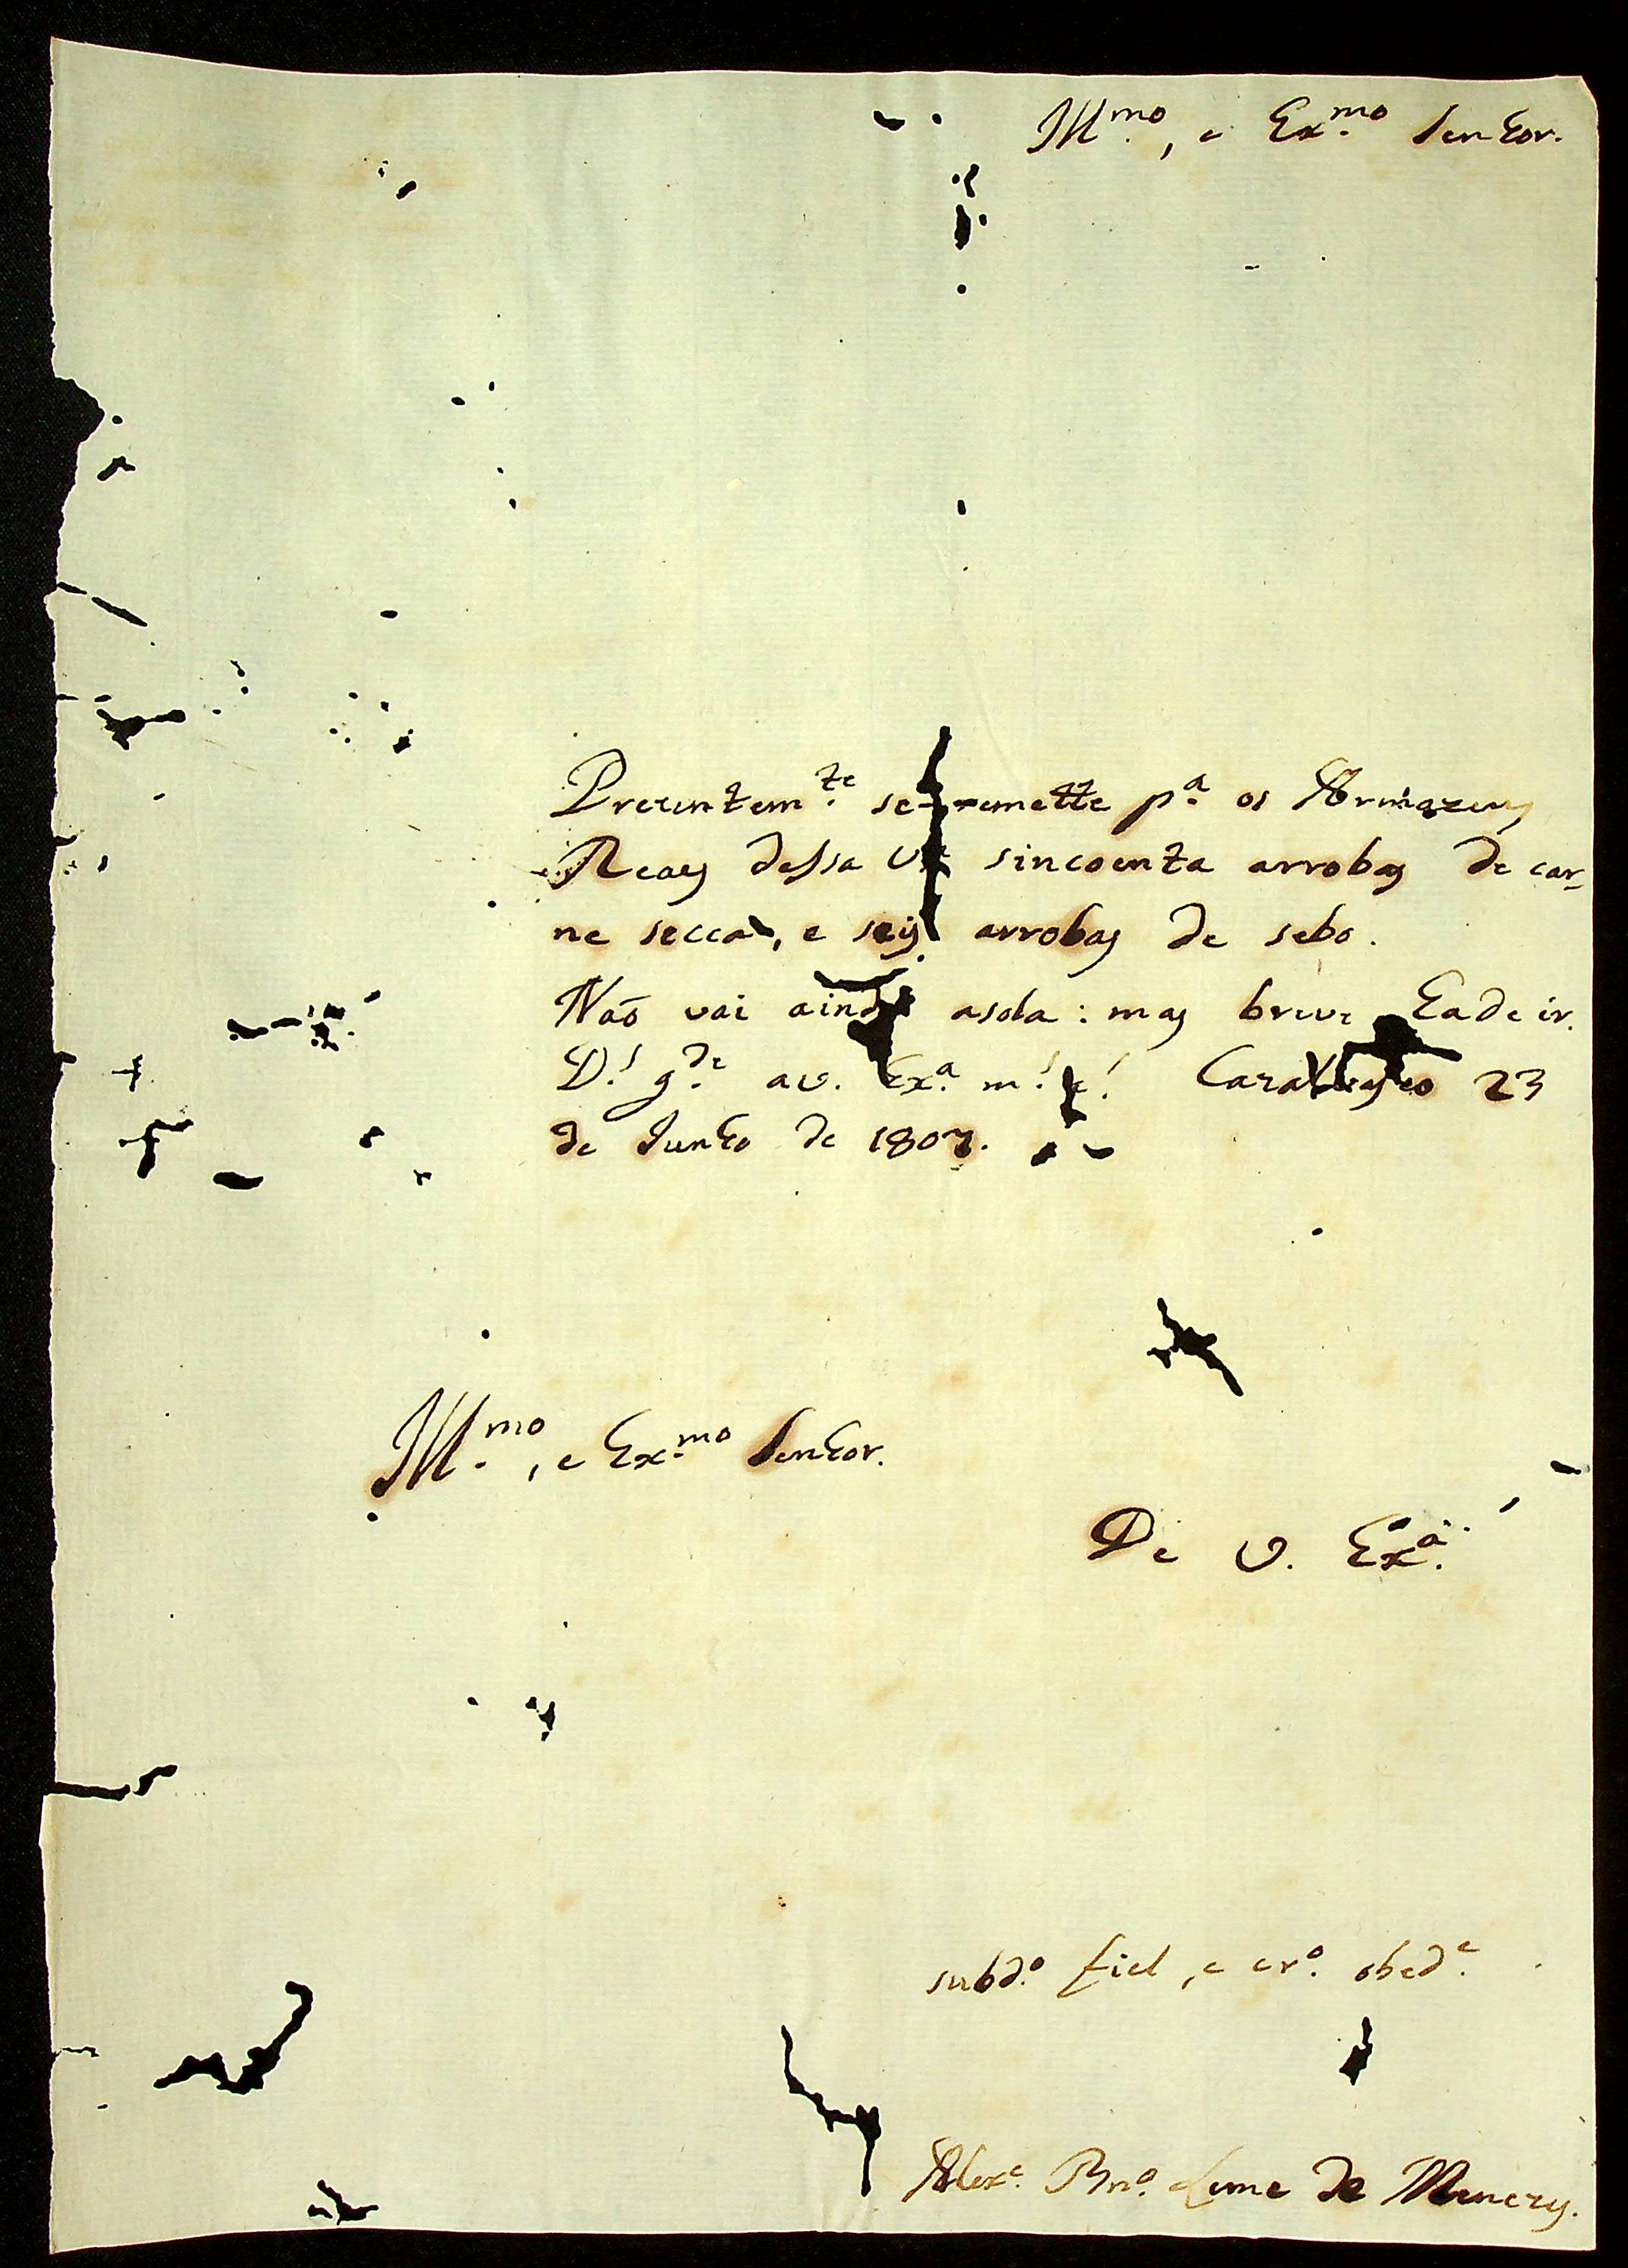 Ill.mo, e Ex.mo Senhor.
Prezentem.te se remette p.a os Armazens
Reaes dessa sincoenta arrobas de car-
ne secca, e seis arrobas de sebo.
Naõ vai ainda asola: mas breve hade ir.
D.s g.de a V. Ex.a m.s 23
de Junho de 1807.
Ill.mo, e Ex.mo Senhor.
De V. Ex.a
subd.o fiel, e cr.o obed.e
Alex.e Bn.o Leme de Menezes.